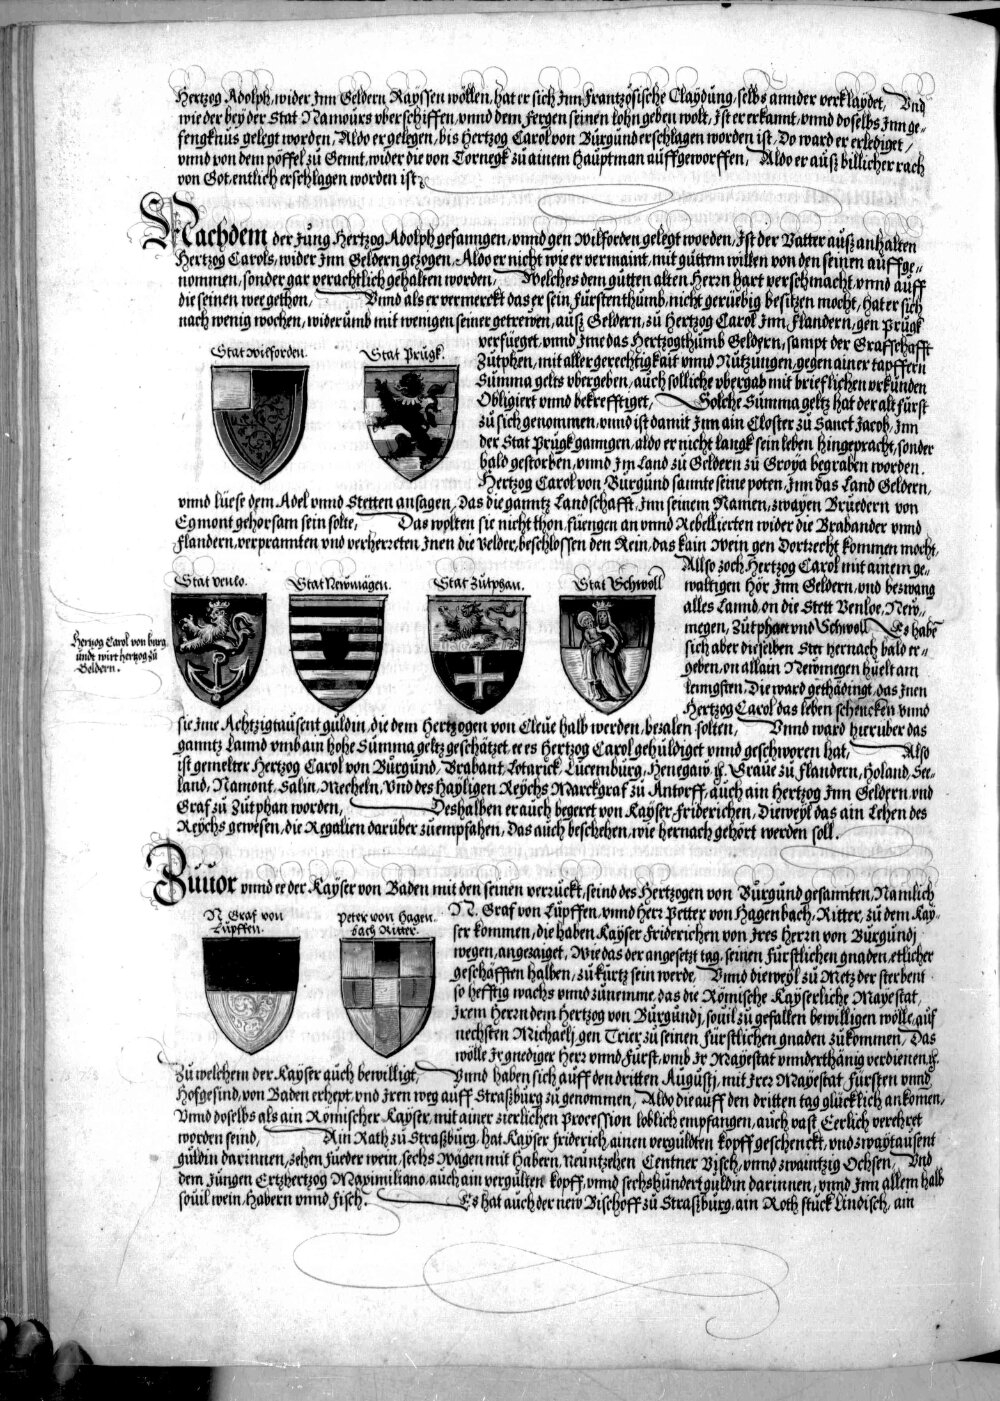 Hertzog Adolph, wider Jnn Geldern Rayssen wöllen, hat er sich Jnn Frantzösische Claydung, selbs annder verklaydet, Vnd
wie der bey der Stat Namours vberschiffen, vnnd dem Fergen seinen lohn geben wolt, Jst er erkannt, vnnd doselbs Jnn ge-
fengknus gelegt worden, Aldo er gelegen, bis Hertzog Carol von Burgund erschlagen worden ist, Do ward er erlediget,
vnnd von dem pöffel zu Gennt, wider die von Tornegk zu ainem Hauptman auffgeworffen, Aldo er auß billicher rach
von Got, entlich erschlagen worden ist,
Nachdem der Jung Hertzog Adolph gefanngen, vnnd gen Wilforden gelegt worden, Jst der Vatter auß anhalten
Hertzog Carols, wider Jnn Geldern gezogen, Aldo er nicht wie er vermaint, mit guttem willen von den seinen auffge-
nommen, sonder gar verachtlich gehalten worden, Welches dem gutten alten Herrn hart verschmacht, vnnd auff
die seinen wee gethon, Vnnd als er vermerckt das er sein Fürstenthumb, nicht geruebig besitzen mocht, hat er sich
nach wenig wochen, widerumb mit wenigen seiner getrewen, auß Geldern, zu Hertzog Carol Jnn Flandern, gen Prugk
Stat Wilforden. Stat Prugk.
verfueget, vnnd Jme das Hertzogthumb Geldern, sampt der Grafschafft
Zutphen, mit aller gerechtigkait vnnd Nutzungen, gegen ainer tapffern
Summa gelts vbergeben, auch solliche vbergab mit brieflichen vrkunden
Obligiert vnnd bekrefftiget, Solche Summa geltz hat der alt fürst
zu sich genommen, vnnd ist damit Jnn ain Closter zu Sanct Jacob, Jnn
der Stat Prugk ganngen, aldo er nicht langk sein leben hingepracht, sonder
bald gestorben, vnnd Jm Land zu Geldern zu Groya begraben worden.
Hertzog Carol von Burgund sannte seine poten, Jnn das Land Geldern,
vnnd liese dem Adel vnnd Stetten ansagen, Das die ganntz Landschafft, Jnn seinem Namen, zwayen Bruedern von
Egmont gehorsam sein solte, Das wolten sie nicht thon, fuengen an vnnd Rebellierten wider die Brabander vnnd
Flandern, verprannten vnd verherreten Jnen die Velder, beschlossen den Rein, das kain Wein gen Dortrecht kommen mocht,
Stat Venlo. Stat Newmägen. Stat Zutphan. Stat Schwoll
Allso zoch Hertzog Carol mit ainem ge-
waltigen Hör Jnn Geldern, vnd bezwang
alles Lannd, on die Stett Venloe, New-
megen, Zutphan vnd Schwoll, Es habe
sich aber dieselben Stet hernach bald er-
geben, on allain Newmegen hielt am
lenngsten, Die ward gethädingt, das Jnen
Hertzog Carol das leben schencken vnnd
Hertzog Carol von burg
undt wirt hertzog zu
Geldern.
sie Jme Achtzigtausent guldin, die dem Hertzogen von Cleue halb werden, bezalen solten, Vnnd ward hieruber das
ganntz Lannd vmb ain hohe Summa geltz geschätzet, ee es Hertzog Carol gehuldiget vnnd geschworen hat, Also
ist gemelter Hertzog Carol von Burgund, Brabant, Lotarick, Lucemburg, Henegaw ꝛc. Graue zu Flandern, Holand, See-
land, Namont, Salin, Mecheln, Vnd des Hayligen Reychs Marckgraf zu Antorff, auch ain Hertzog Jnn Geldern, vnd
Graf zu Zutphan worden, Deshalben er auch begeret von Kayser Friderichen, Dieweyl das ain Lehen des
Reychs gewesen, die Regalien darüber zuempfahen, Das auch beschehen, wie hernach gehört werden soll.
Zuuor vnnd ee der Kayser von Baden mit den seinen verruckt, seind des Hertzogen von Burgund gesannten, Namlich
N. Graf von Lupffen. Peter von Hagenbach Ritter.
N. Graf von Lupffen, vnnd Herr Petter von Hagenbach, Ritter, zu dem Kay-
ser kommen, die haben Kayser Friderichen von Jres Herrn von Burgundj
wegen, angezaiget, Wie das der angesetzt tag, seinen Fürstlichen gnaden, etlicher
geschäfften halben, zu kurtz sein werde, Vnnd dieweyl zu Metz der sterbent
so hefftig wachs vnnd zunemme, das die Römische Kayserliche Mayestat,
Jrem Herrn dem Hertzog von Burgundj, souil zu gefallen bewilligen wölle, auf
nechsten Michaelj, gen Trier zu seinen Fürstlichen gnaden zukommen, Das
wölle Jr gnediger Herr vnnd Fürst, vmb Jr Mayestat vnnderthänig verdienen ꝛc.
Zu welchem der Kayser auch bewilligt, Vnnd haben sich auff den dritten Augustj, mit Jrer Mayestat Fürsten vnnd
Hofgesind, von Baden erhept, vnd Jren weg auff Straßburg zu genommen, Aldo die auff den dritten tag glücklich ankomen,
Vnnd doselbs als ain Römischer Kayser, mit ainer zierlichen Procession loblich empfangen, auch vast Eerlich verehret
worden seind, Ain Rath zu Straßburg, hat Kayser Friderich ainen vergulden kopff geschenckt, vnd zwaytausent
guldin darinnen, zehen Fueder wein, sechs Wägen mit Habern, Neuntzehen Centner Visch, vnnd zwaintzig Ochsen, Vnd
dem Jungen Ertzhertzog Maximiliano, auch ain vergulten kopff, vnnd sechshundert guldin darinnen, vnnd Jnn allem halb
souil wein, Habern vnnd Fisch. Es hat auch der new Bischoff zu Straßburg, ain Roth stuck Lindisch, ain